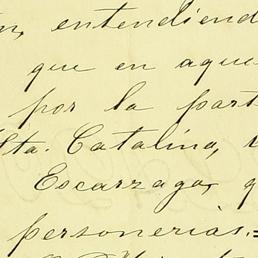 entendiend
que en aque
por la part
Sta. Catalina,
Escarzaga, q
personerias.=